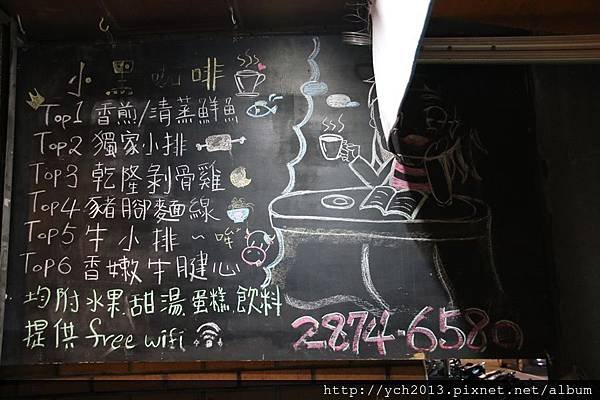 小黑咖啡
Top1 香煎/清蒸鮮魚
Top2 獨家小排
Top3 乾隆剝骨雞
Top4 豬腳麵線
Top5 牛小排~哞
Top6 香嫩牛腱心
均附水果.甜湯.蛋糕.飲料
提供 free wifi
2874-6580
http://ych2013.pixnet.net/album